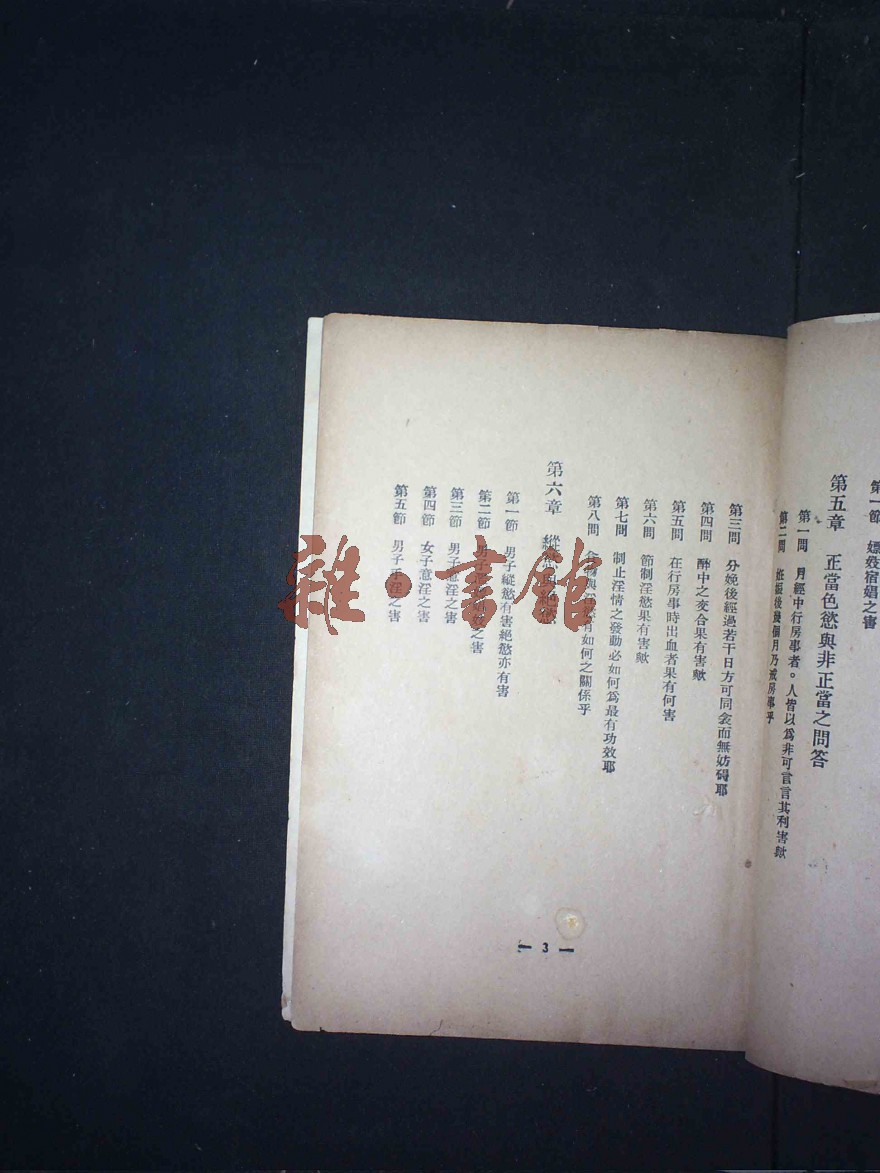 第一節　嫖妓宿娼之害
第五章　正當色慾與非正當之問答
第一問　月經中行房事者。人皆以爲非可言言其利害歟
第二問　妊娠後幾個月乃戒房事乎
第三問　分娩後經過若干日方可同衾而無妨碍耶
第四問　醉中之交合果有害歟
第五問　在行房事時出血者果有何害
第六問　節制淫慾果有害歟
第七問　制止淫情之發動必如何爲最有功效耶
第八問　有如何之關係乎
第六章　縱慾與絕慾
第一節　男子縱慾有害絕慾亦有害
第二節　男子之害
第三節　男子意淫之害
第四節　女子意淫之害
第五節　男子手淫之害
— 3 —
雜·書館